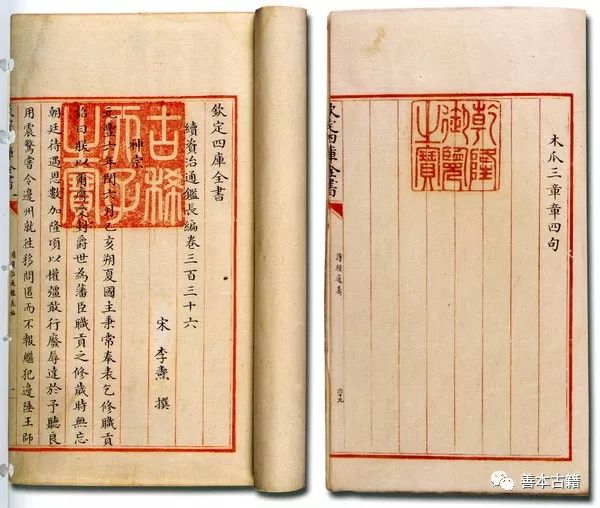 欽定四庫全書
續資治通鑑長編卷三百三十六
宋 李燾 撰
神宗
元豐六年閏六月乙亥朔夏國主秉常奉表乞修職貢
詔曰朕以爾膺受封爵世為藩臣職貢之修歲時無忘
朝廷待遇恩數加隆頃以權彊敢行廢辱達於予聽良
用震驚嘗令邊州就往移問匿而不報繼犯邊陲王師
古稀天子之寶
欽定四庫全書
續資治通鑑長編
一
木瓜三章章四句
乾隆御覽之寶
欽定四庫全書
詩經通義
六十九
善本古籍